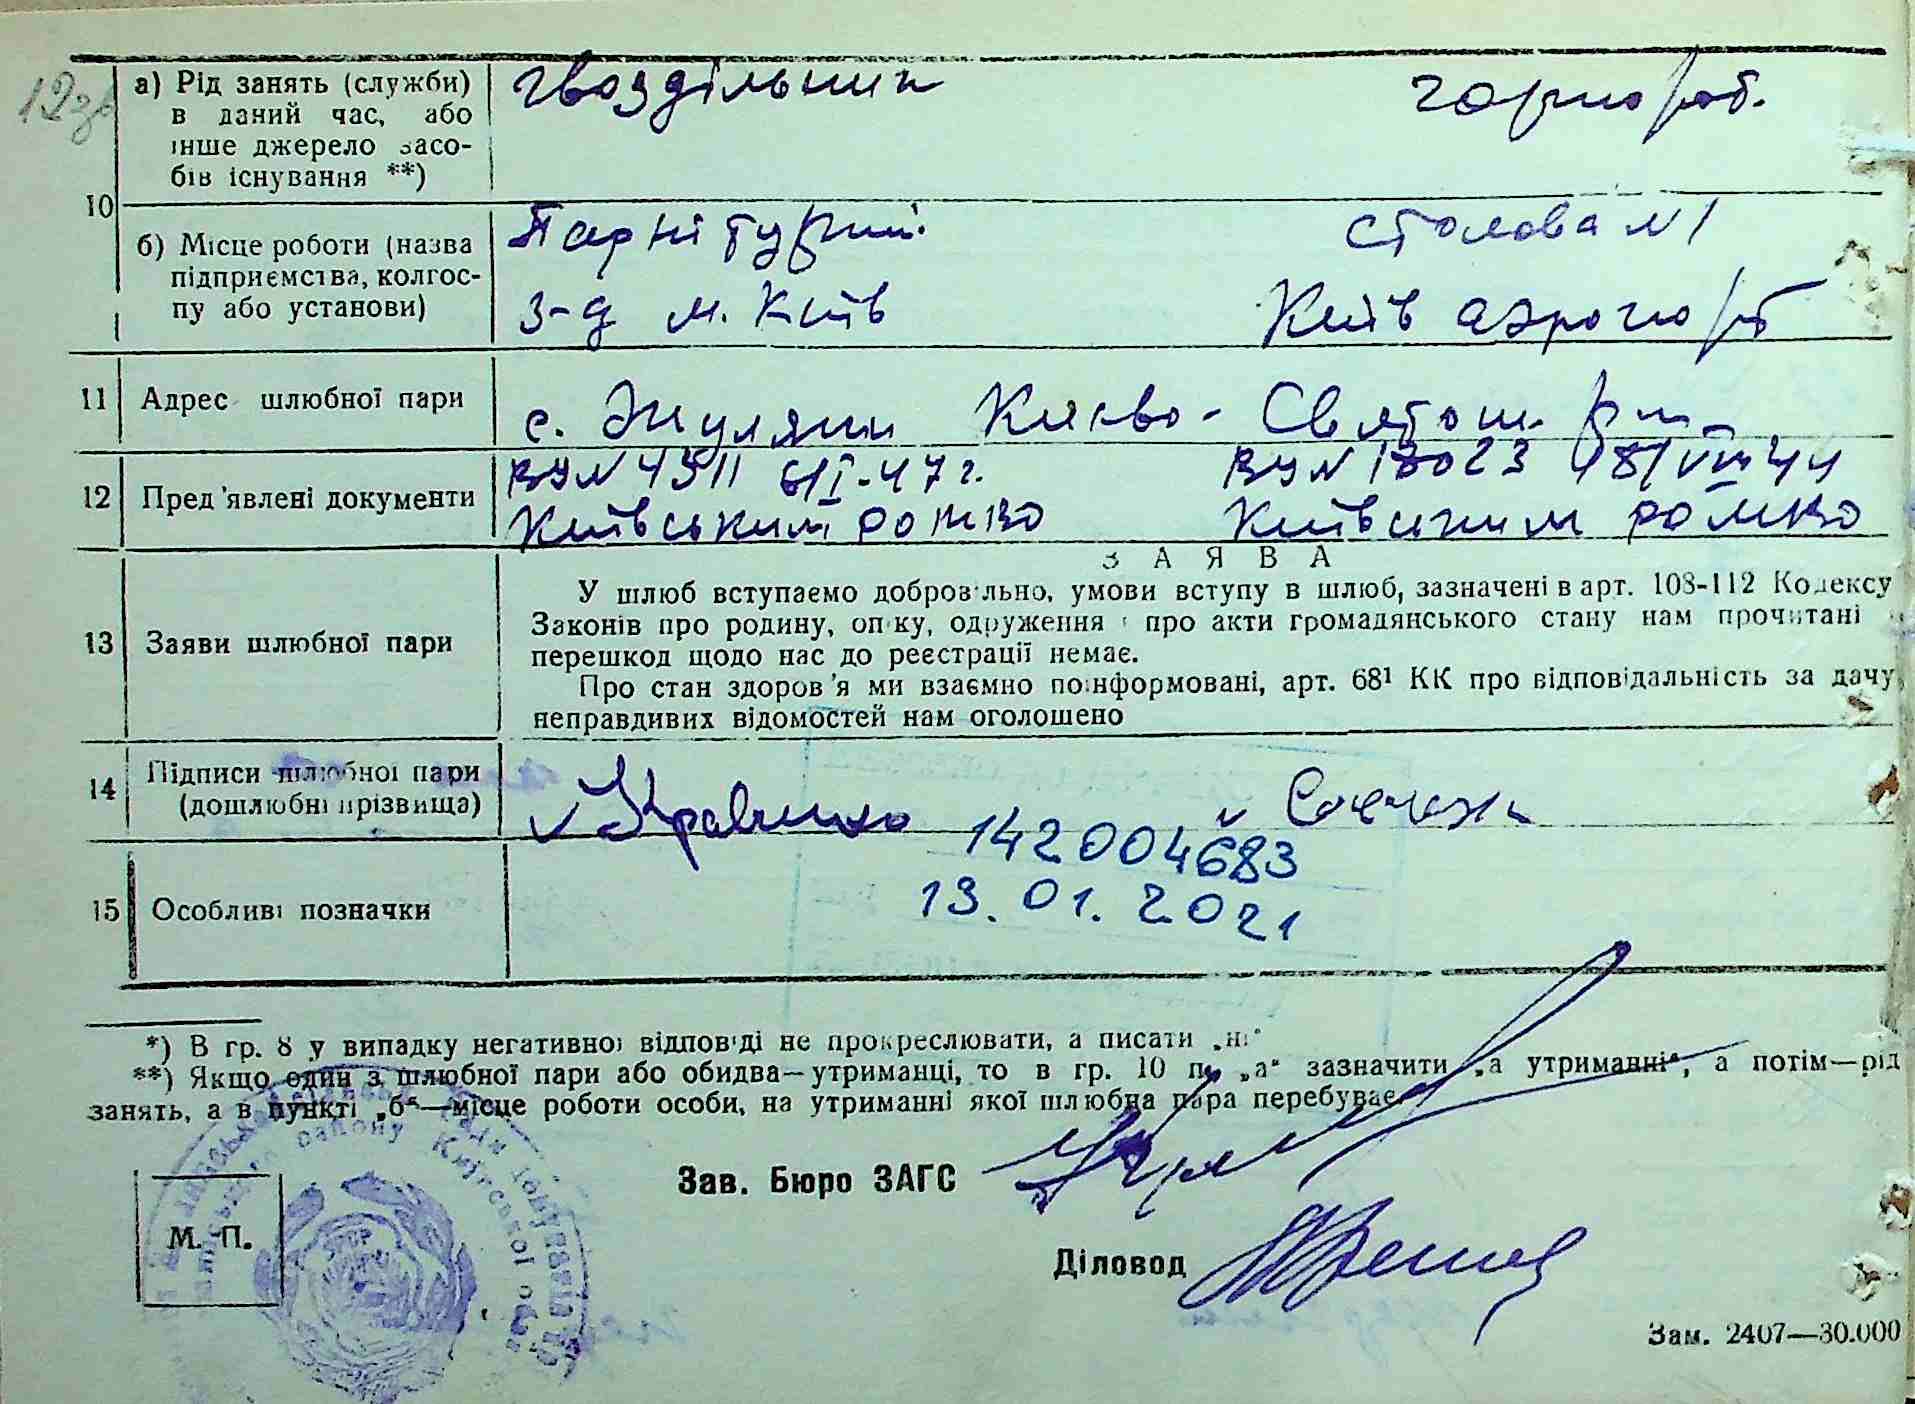 12зв
а) Рід занять (служби) в даний час, або інше джерело засобів існування **)
гвоздільник
чорнораб.
10
б) Місце роботи (назва підприємства, колгоспу або установи)
з-д м. Київ
столова №1
Київ аэропорт
11 Адрес шлюбної пари
с. Жуляни Києво-Святош. р-н
12 Пред'явлені документи
Київським
Київським
З А Я В А
13 Заяви шлюбної пари
У шлюб вступаємо добровільно, умови вступу в шлюб, зазначені в арт. 108-112 Кодексу
Законів про родину, опіку, одруження і про акти громадянського стану нам прочитані
перешкод щодо нас до реєстрації немає.
Про стан здоров'я ми взаємно поінформовані, арт. 68¹ КК про відповідальність за дачу
неправдивих відомостей нам оголошено
14 Підписи шлюбної пари (дошлюбні прізвища)
142004683
15 Особливі позначки
13.01.2021
*) В гр. 8 у випадку негативної відповіді не прокреслювати, а писати „ні"
**) Якщо один з шлюбної пари або обидва—утриманці, то в гр. 10 п. „а" зазначити „а утриманні", а потім—рід
занять, а в пункті „б"—місце роботи особи, на утриманні якої шлюбна пара перебуває.
Зав. Бюро ЗАГС
М. П.
Діловод
району Київської обл
Зам. 2407—30.000